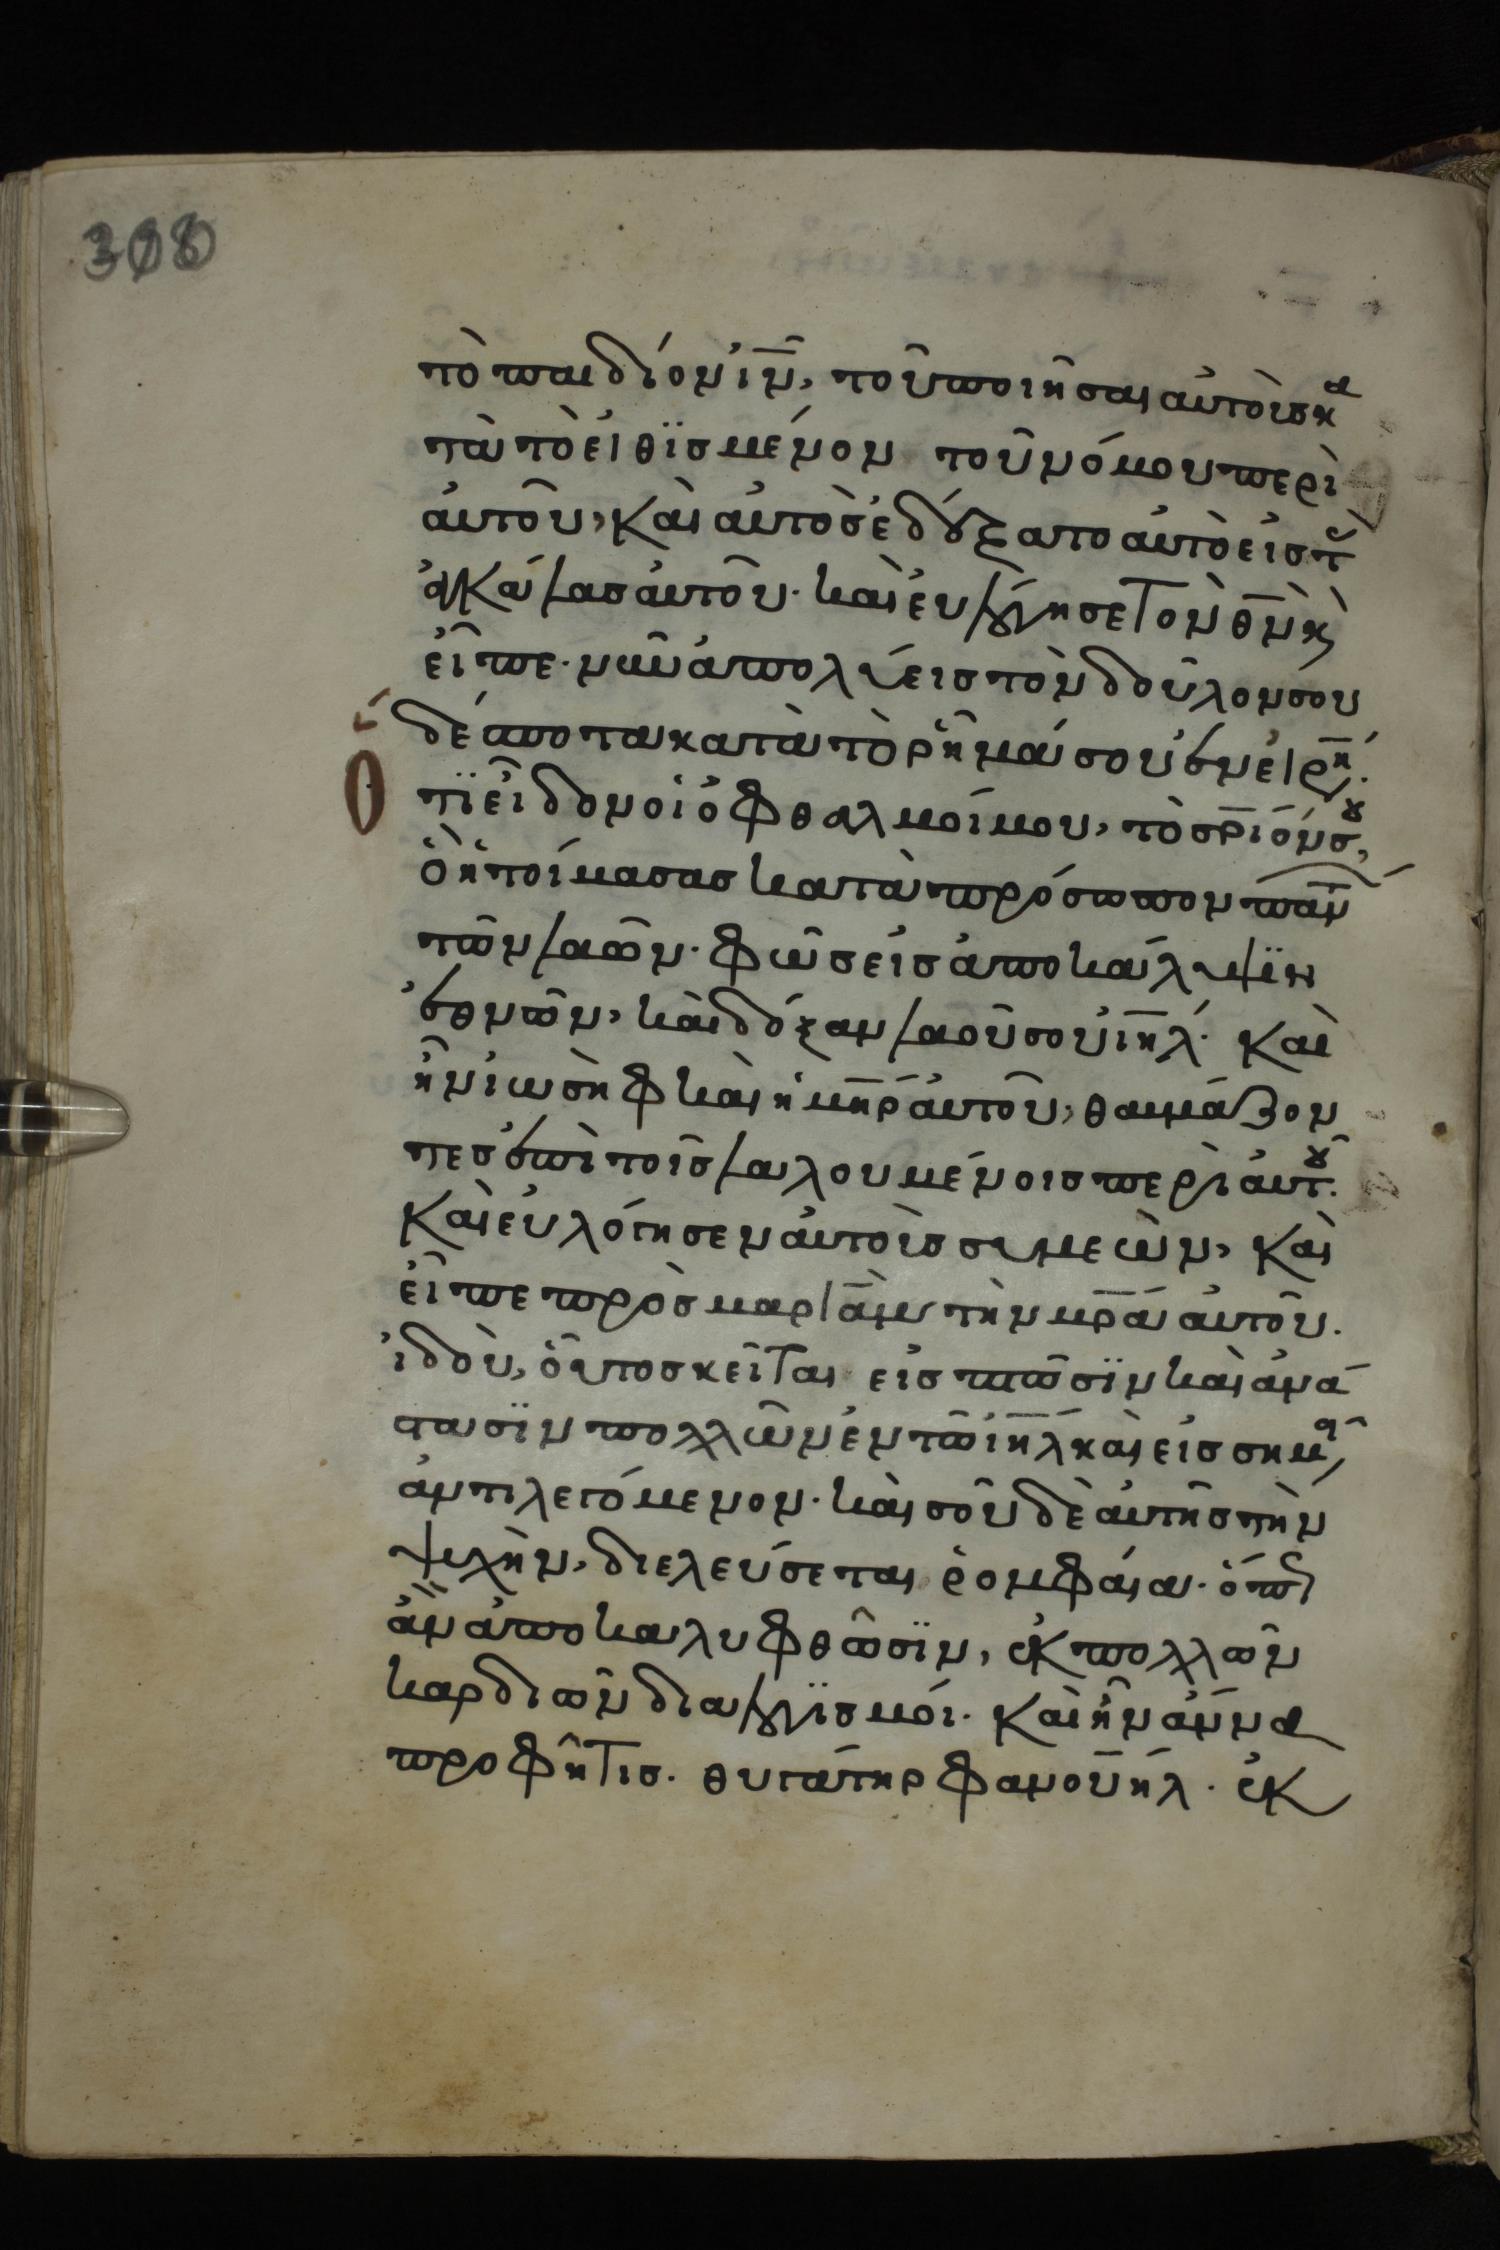 308
τὸ παιδίον ἰ̅ν̅, τοῦ ποιῆσαι αὐτοὺσ κα
τὰ τὸ εἰθϊσμένον τοῦ νόμου περὶ
αὐτοῦ, καὶ αὐτὸσ ἐδέξατο αὐτὸ εἰσ τ
ἀγκάλασ αὐτοῦ. καὶ ἐυλόγησε τὸν θ̅ν̅ κ
εἶπε. νῦν ἀπολύεισ τὸν δοῦλον σου
δέσποτα κατὰ τὸ ρῆμά σου ἐν εἰρή.
Ὅτϊ εἶδον οἱ ὀφθαλμοί μου, τὸ σ̅ρ̅ιόν σου,
ὃ ἡτοίμασασ κατὰ πρόσωπον παν
τῶν λαῶν. φῶσ εἰσ ἀποκάλυψϊν
ἐθνῶν, καὶ δόξαν λαοῦ σου ἰ̅η̅λ̅. καὶ
ἦν ἰωσὴφ καὶ ἡ μ̅η̅ρ̅ αὐτοῦ, θαυμάζον
τεσ ἐπὶ τοῖσ λαλουμένοισ περὶ αὐτοῦ.
καὶ ευλόγησεν αὐτοὺσ συμεὼν, καὶ
εἶπε πρὸσ μαριὰμ τὴν μ̅ρ̅α̅ αὐτοῦ.
ἰδοὺ, οὗτοσ κεῖται εἰσ πτῶσϊν καὶ ἀνά
στασϊν πολλῶν ἐν τῶ ἰ̅η̅λ̅ καὶ εἰσ σημ
ἀντιλεγόμενον. καὶ σοῦ δὲ αὐτῆσ τὴν
ψυχὴν, διελεύσεται ρομφαία. ὅπωσ
ἂν ἀποκαλυφθῶσϊν, ἐκ πολλῶν
καρδιῶν διαλογϊσμοί. καὶ ἦν ἄννα
προφῆτισ. θυγάτηρ φανουήλ. ἐκ